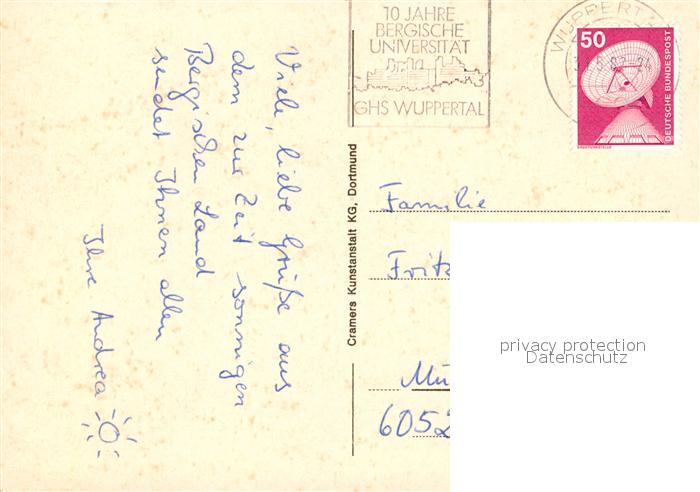 10 JAHRE
BERGISCHE
UNIVERSITÄT
GHS WUPPERTAL
WUPPERT
50
DEUTSCHE BUNDESPOST
ERDEFUNKSTELLE
Viele, liebe Grüße aus
dem zur Zeit sonnigen
Bergischen Land
sendet Ihnen allen
Ihre Andrea
Cramers Kunstanstalt KG, Dortmund
Familie
Fritz
Mü
6052
privacy protection
Datenschutz